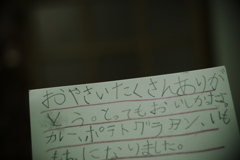 おやさいたくさんありが
とう。とってもおいしかたす。
カレー、ポテトグラタン、いも
になりました。